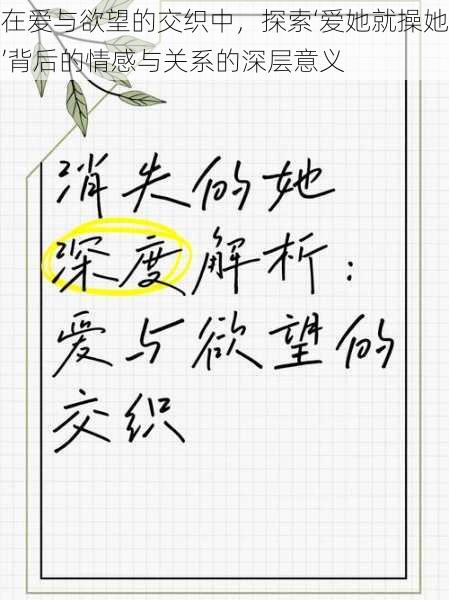 在爱与欲望的交织中，探索‘爱她就操她
’背后的情感与关系的深层意义
消失的她
深度解析：
爱与欲望的
交织